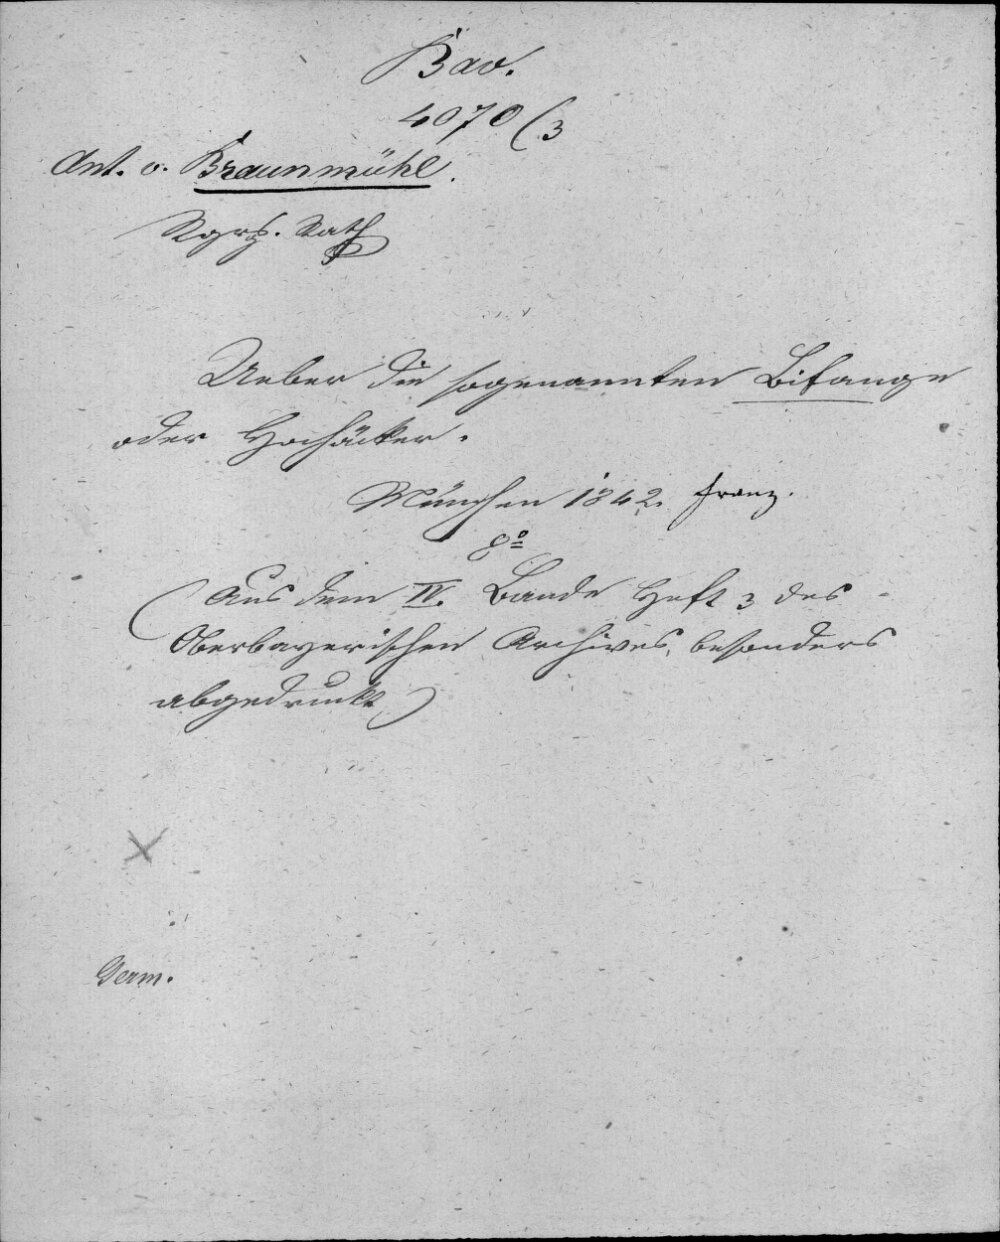 Bav.
4070 (3
Ant. v. Braunmühl.
Rgrs. Rath
Ueber die sogenannten Bifange
oder Hochäcker.
München 1842. Franz.
8º
(Aus dem IV. Bande Heft 3 des
Oberbayerischen Archives, besonders
abgedruckt)
Germ.